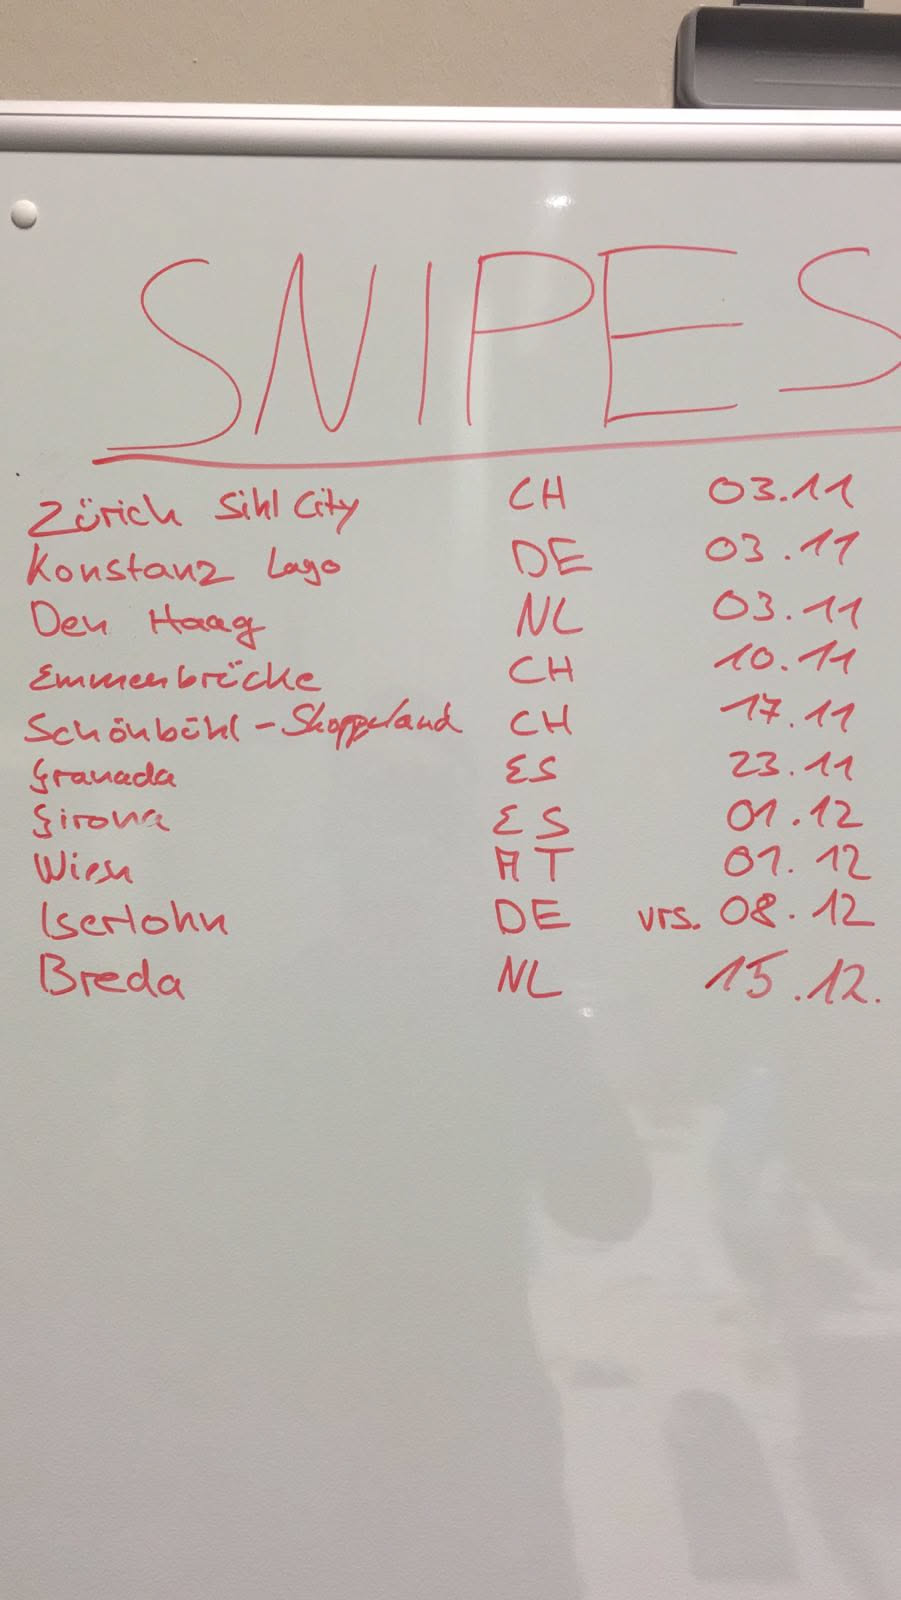 SNIPES
Zürich Sihl City CH 03.11
Konstanz Lago DE 03.11
Den Haag NL 03.11
Emmenbrücke CH 10.11
Schönbühl - Shoppyland CH 17.11
Granada ES 23.11
Girona ES 01.12
Wien AT 01.12
Iserlohn DE vrs. 08.12
Breda NL 15.12.